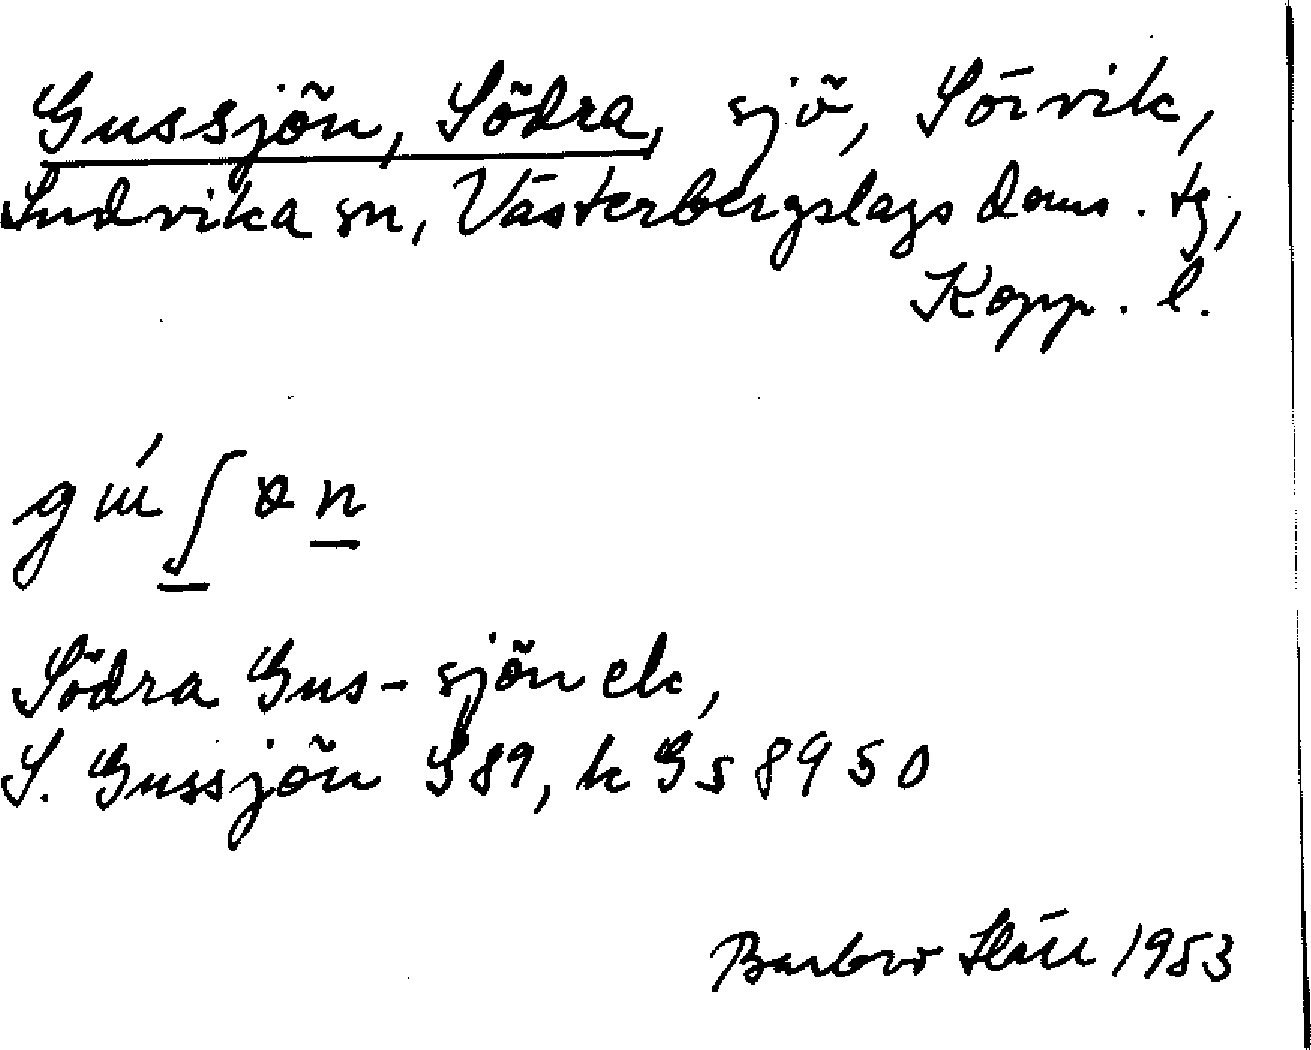 Gussjön, Södra, sjö, Sörvik,
Ludvika sn, Västerbergslags doms. tg,
Kopp. l.
Södra Gus-sjön ek,
S. Gussjön S89, k Gs 8950
Barbro 1953